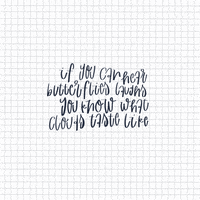 if you can hear
butterflies laughs
you know what
clouds taste like